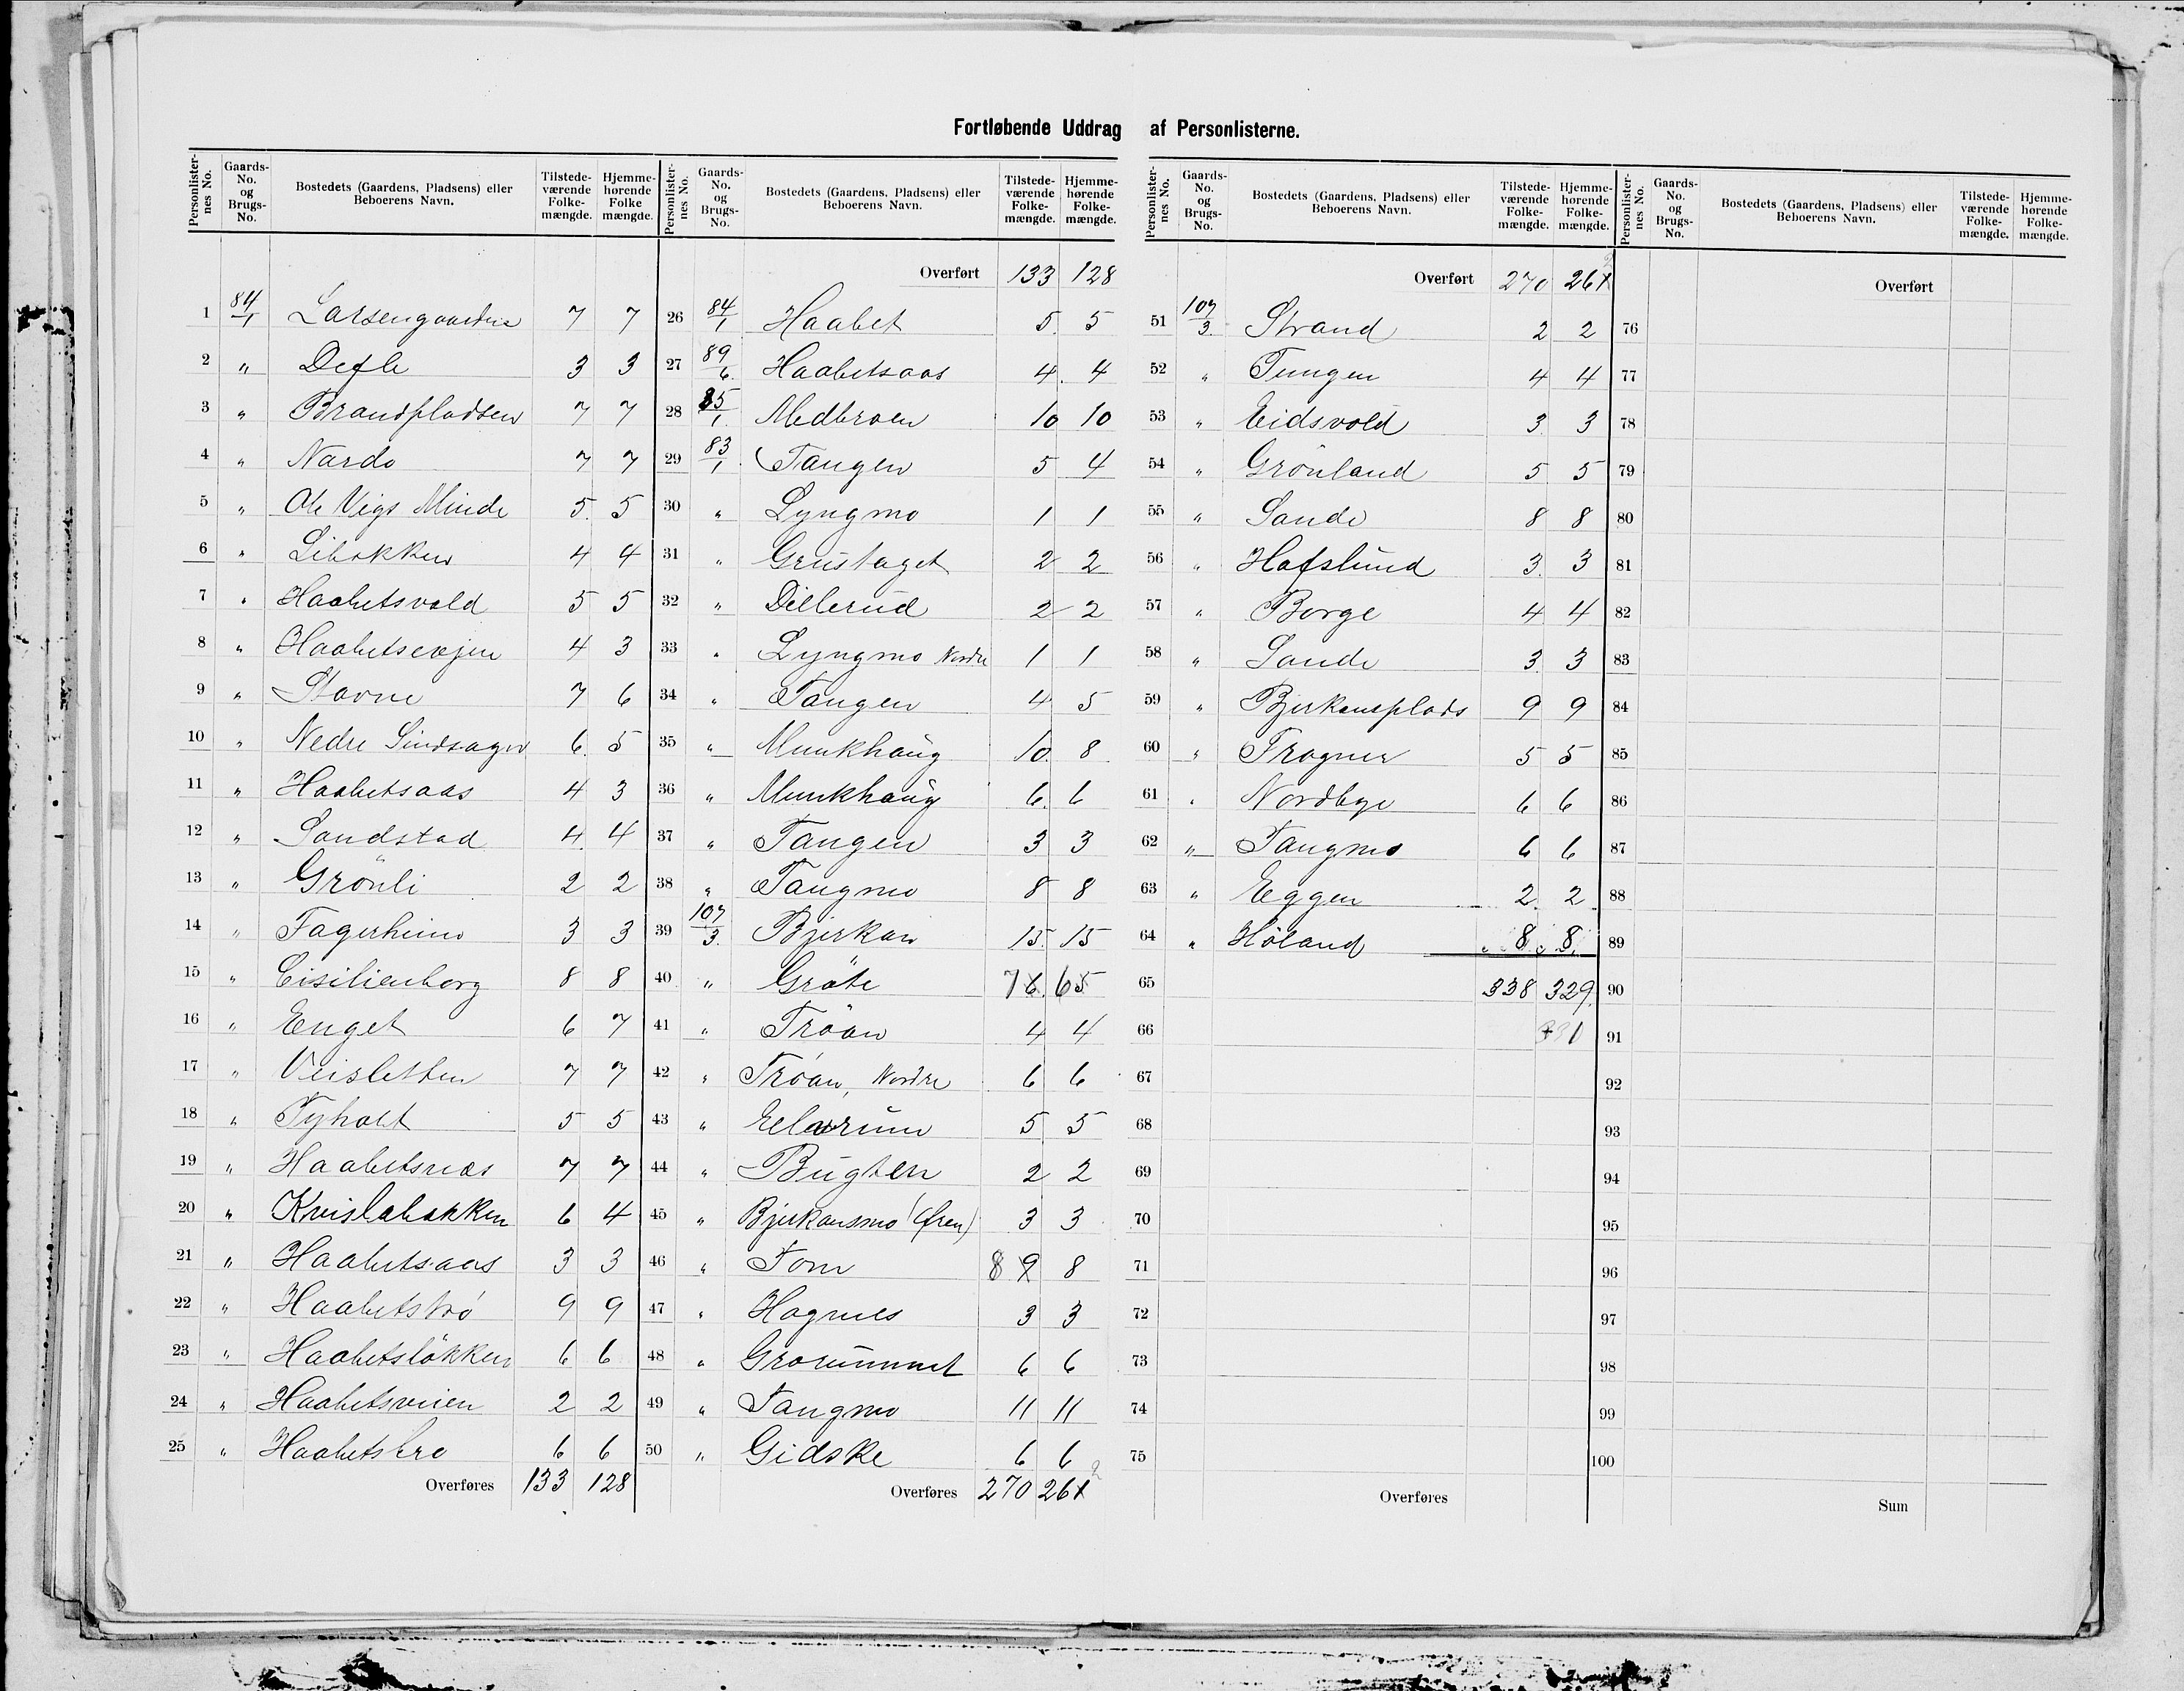 Fortløbende Uddrag af Personlisterne.
Personlister-nes No. Gaards-No. og Brugs-No. Bostedets (Gaardens, Pladsens) eller Beboerens Navn. Tilstede-værende Folke-mængde. Hjemme-hørende Folke mængde.
1 84/1 Larsengaarden 7 7
2 " Defle 3 3
3 " Brandpladsen 7 7
4 " Nardo 7 7
5 " Ole Vigs Minde 5 5
6 " Libakken 4 4
7 " Haabetsvold 5 5
8 " 4 3
9 " Stavne 7 6
10 " Nedre 6 5
11 " Haabetsaas 4 3
12 " Sandstad 4 4
13 " Grönli 2 2
14 " Fagerheim 3 3
15 " Cisilienborg 8 8
16 " Enget 6 7
17 " Veisletten 7 7
18 " Tyholt 5 5
19 " Haabetsnæs 7 7
20 " Kvislabakken 6 4
21 " Haabetsaas 3 3
22 " Haabetstrø 9 9
23 " Haabetsløkken 6 6
24 " Haabetsveien 2 2
25 " Haabetsbro 6 6
Overføres 133 128
Personlister-nes No. Gaards-No. og Brugs-No. Bostedets (Gaardens, Pladsens) eller Beboerens Navn. Tilstede-værende Folke-mængde. Hjemme-hørende Folke-mængde.
Overført 133 128
26 84/1 Haabet 5 5
27 89/6 Haabetsaas 4 4
28 85/1 Medbroen 10 10
29 83/1 Tangen 5 4
30 " Lyngmo 1 1
31 " Grustaget 2 2
32 " Dillerud 2 2
33 " Lyngmo Nordre 1 1
34 " Tangen 4 5
35 " Munkhaug 10 8
36 " Munkhaug 6 6
37 " Tangen 3 3
38 " Tangmo 8 8
39 107/3 Bjerkan 15 15
40 " Gröte 76 65
41 " Tröan 4 4
42 " Tröan, Nordre 6 6
43 " 5 5
44 " Bugten 2 2
45 " Bjerkansmo (Øren) 3 3
46 " 8 9 8
47 " Hagnes 3 3
48 " 6 6
49 " Tangmo 11 11
50 " Gidske 6 6
Overføres 270 261 2
Personlister-nes No. Gaards-No. og Brugs-No. Bostedets (Gaardens, Pladsens) eller Beboerens Navn. Tilstede-værende Folke-mængde. Hjemme-hørende Folke-mængde.
Overført 270 261 2
51 107/3 Strand 2 2
52 " Tungen 4 4
53 " Eidsvold 3 3
54 " Grönland 5 5
55 " Sande 8 8
56 " Hafslund 3 3
57 " Borge 4 4
58 " Sande 3 3
59 " Bjerkansplads 9 9
60 " Frogner 5 5
61 " Nordbye 6 6
62 " Tangmo 6 6
63 " Eggen 2 2
64 " Höland 8 8
65 338 329
66 331
67
68
69
70
71
72
73
74
75
Overføres
Personlister-nes No. Gaards-No. og Brugs-No. Bostedets (Gaardens, Pladsens) eller Beboerens Navn. Tilstede-værende Folke-mængde. Hjemme-hørende Folke-mængde.
Overført
76
77
78
79
80
81
82
83
84
85
86
87
88
89
90
91
92
93
94
95
96
97
98
99
100
Sum